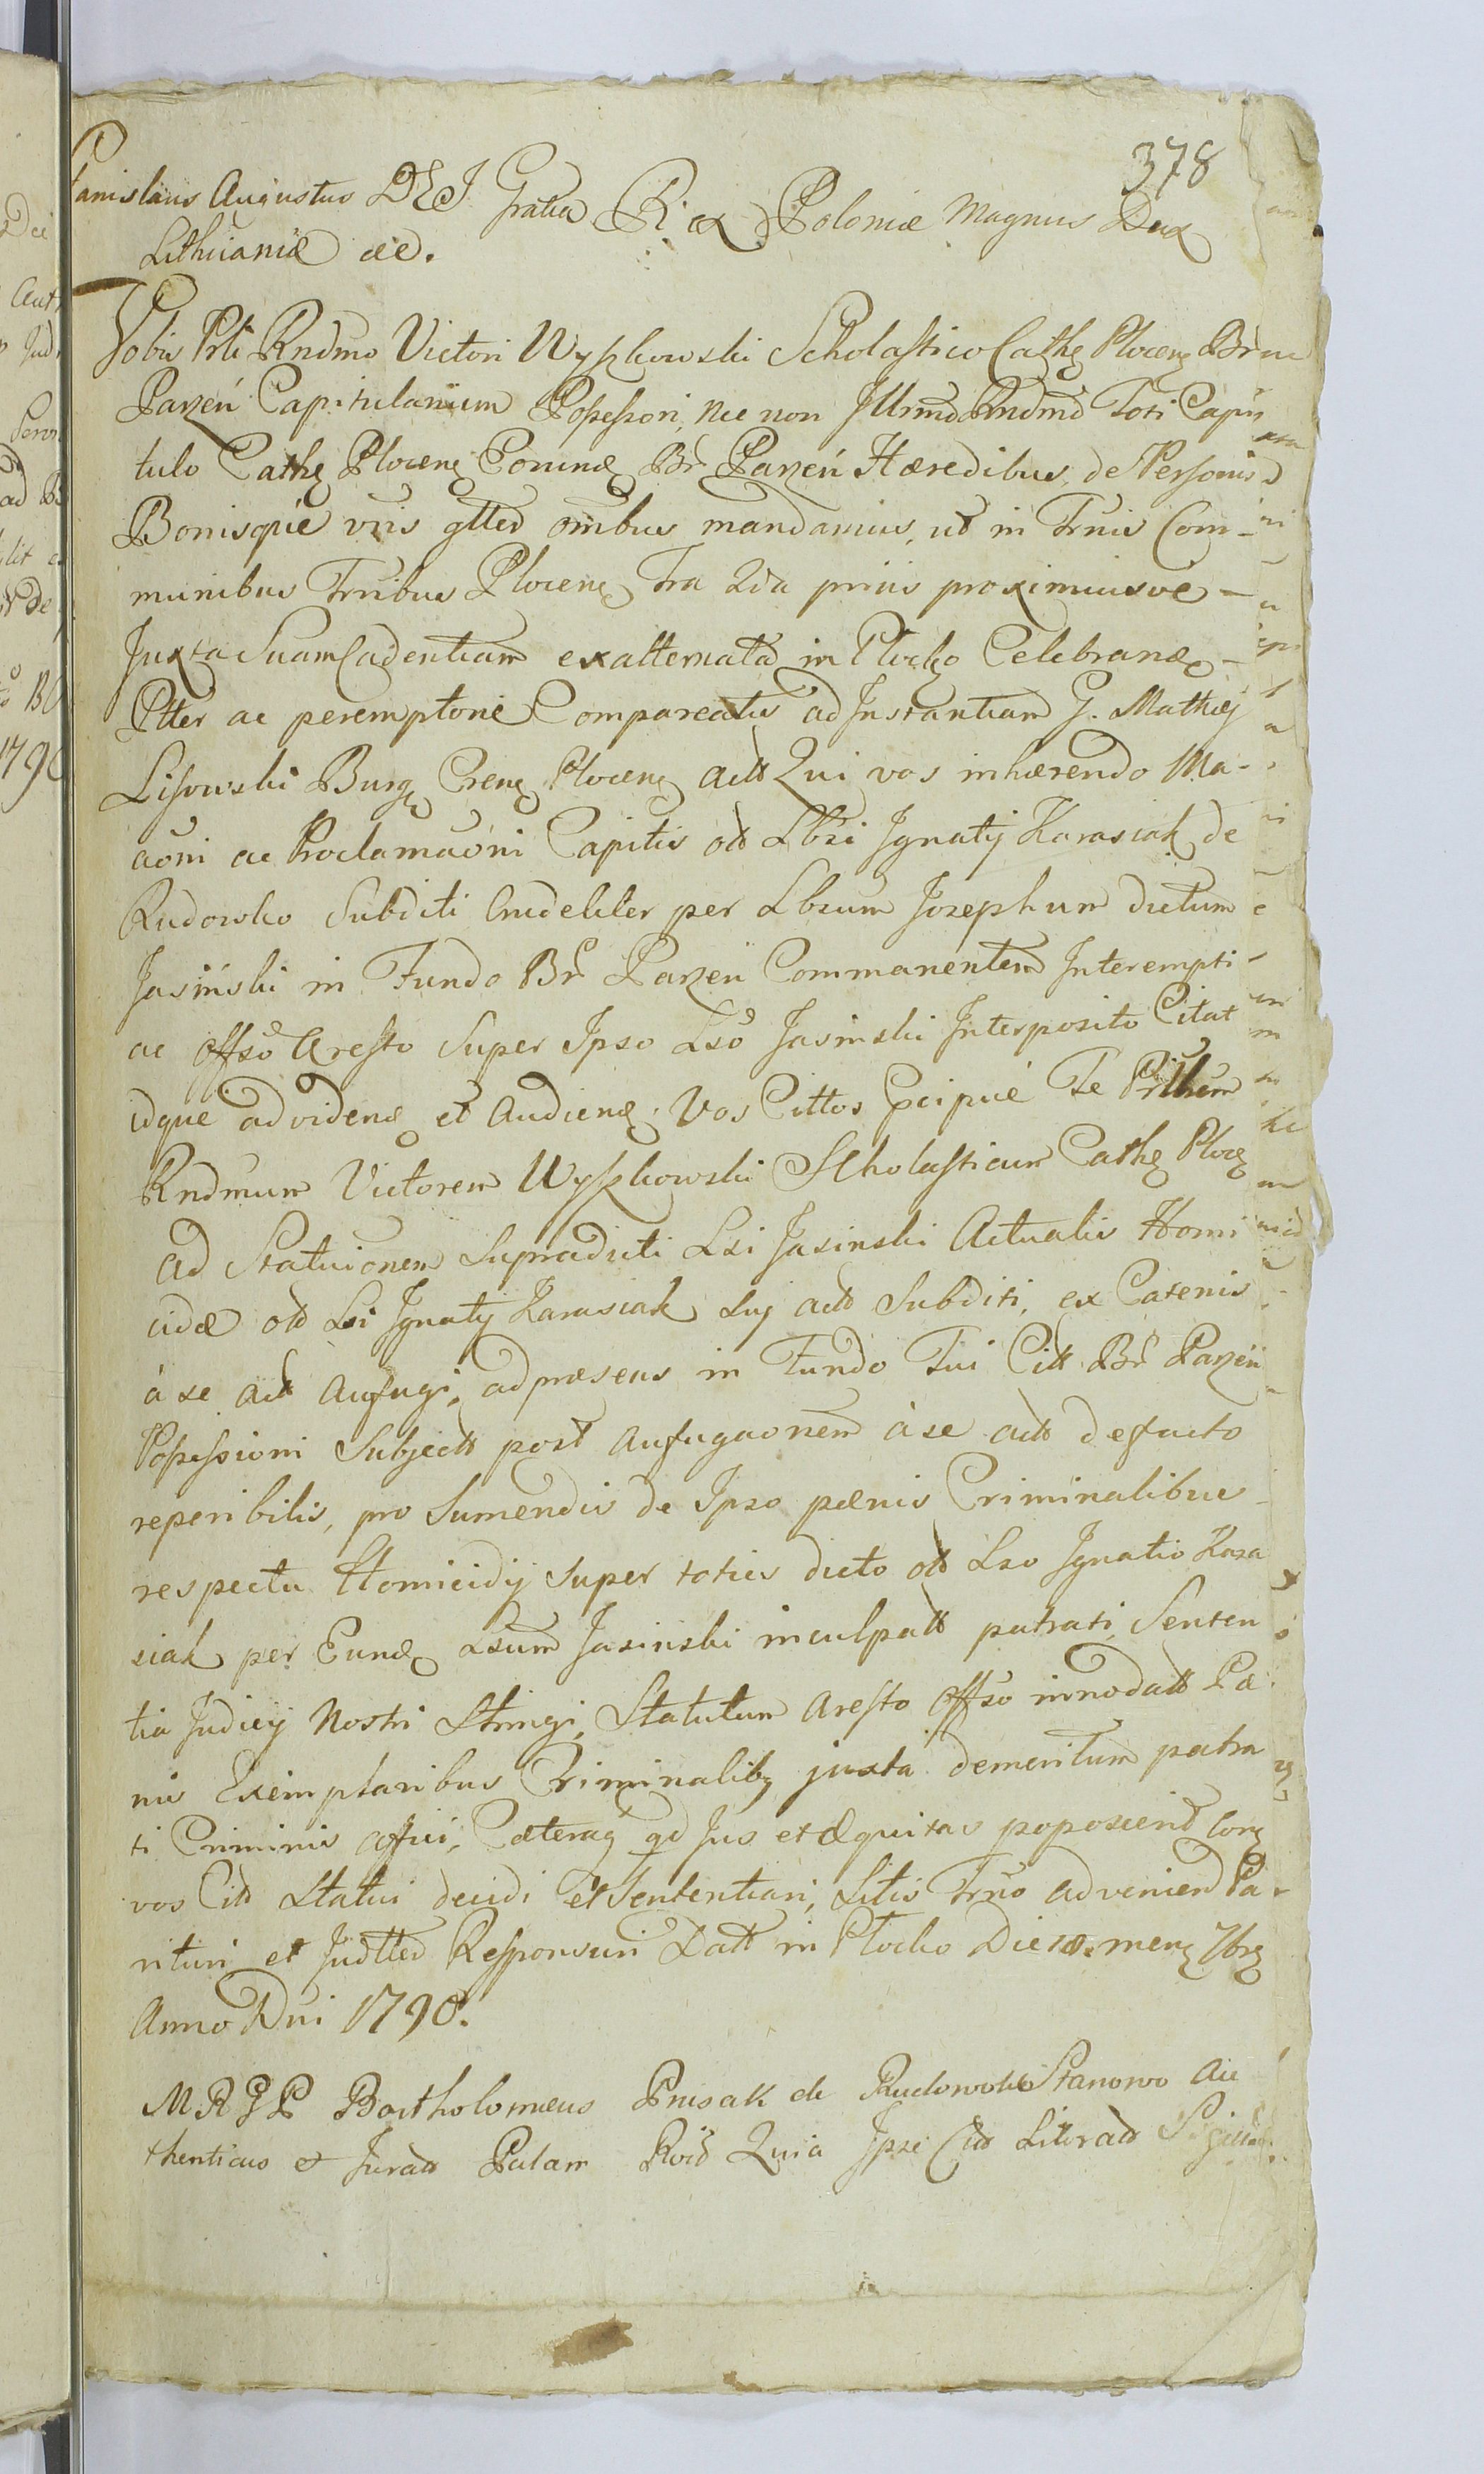 378
Stanislaus Augustus DEI Gratia Rex Poloniæ Magnus Dux
Lithuaniæ &c.
Vobis Prli Rndmo Victori Wyszkowski Scholastico Cathę Plocenę Brum
Parzeń Capitularium Possessori, nec non Illrmo Rndmo Toti Capi
tulo Cathę Plocenę Eorundę Br Parzeń Hæredibus, de Personis
Bonisque vris gtter omibus mandamus, ut in Trnis Com-
munibus Trribus Plocenę Fra 2da prius proximiusve -
Juxta Suam Cadentiam exalternata in Plocko Celebrandę -
Ptter ac peremptorie Compareatis ad Instantiam G. Mathęj
Lisowski Burgę Crenę Plocenę actt Qui vos inhærendo Ma-
aoni ac Proclamaoni Capitis ott Lbri Ignatij Karasiak de
Rudowko Subditi Crudeliter per Lbsum Josephum dictum
Jasiński in Fundo Br Parzeń Commanentem Interempti
ac offso Aresto Super Ipso Lso Jasinski Interposito Citat
idque ad videndę et Audiendę. Vos Cittos Pcipue Te Prlhem
Rndmum Victorem Wyszkowski Scholasticum Cathę Plocę
ad Statuionem Supradicti Lsi Jasinski Actualis Homi
cidæ ott Lsi Ignatij Karasiak Suj actt Subditi, ex Catenis
à se act Aufugi, ad præsens in Fundo Tui Citt Br Parzeń
Possessioni Subjectt post Aufugaonem à se actt de facto
reperibilis, pro Sumendis de Ipso pænis Criminalibus
respectu Homicidij Super toties dicto ott Lso Ignatio Kara
siak per Eundę Lsum Jasinski inculpatt patrati, Senten
tia Judicij Nostri Stringi, Statutum Aresto offso innodatt Pæ
nis Exemplaribus Criminalibq juxta demeritum patra
ti Criminis affici, Cæteraq qd Jus et Æquitas poposcerit Corę
vos Citt Statui decidi et Sententiari, Litis Trno advenien Pa
rituri et Judtter Responsuri Datt in Plocko Die 10. menę 7brę
Anno Dni 1790.
M R G P Bartholomæus Prusak de Rudowko Stanowo Au
thenticus et Juratt Palam Roit Quia Ipse Citt Literatt